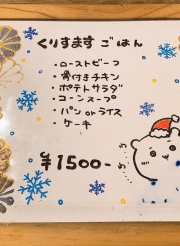 くりすます ごはん
・ローストビーフ
・骨付きチキン
・ポテトサラダ
・コーンスープ
・パン or ライス
・ケーキ
¥1500-